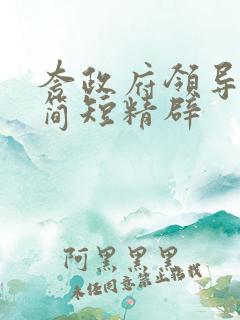 夸政府领导
简短精辟
阿黑黑黑
未经同意禁止转载